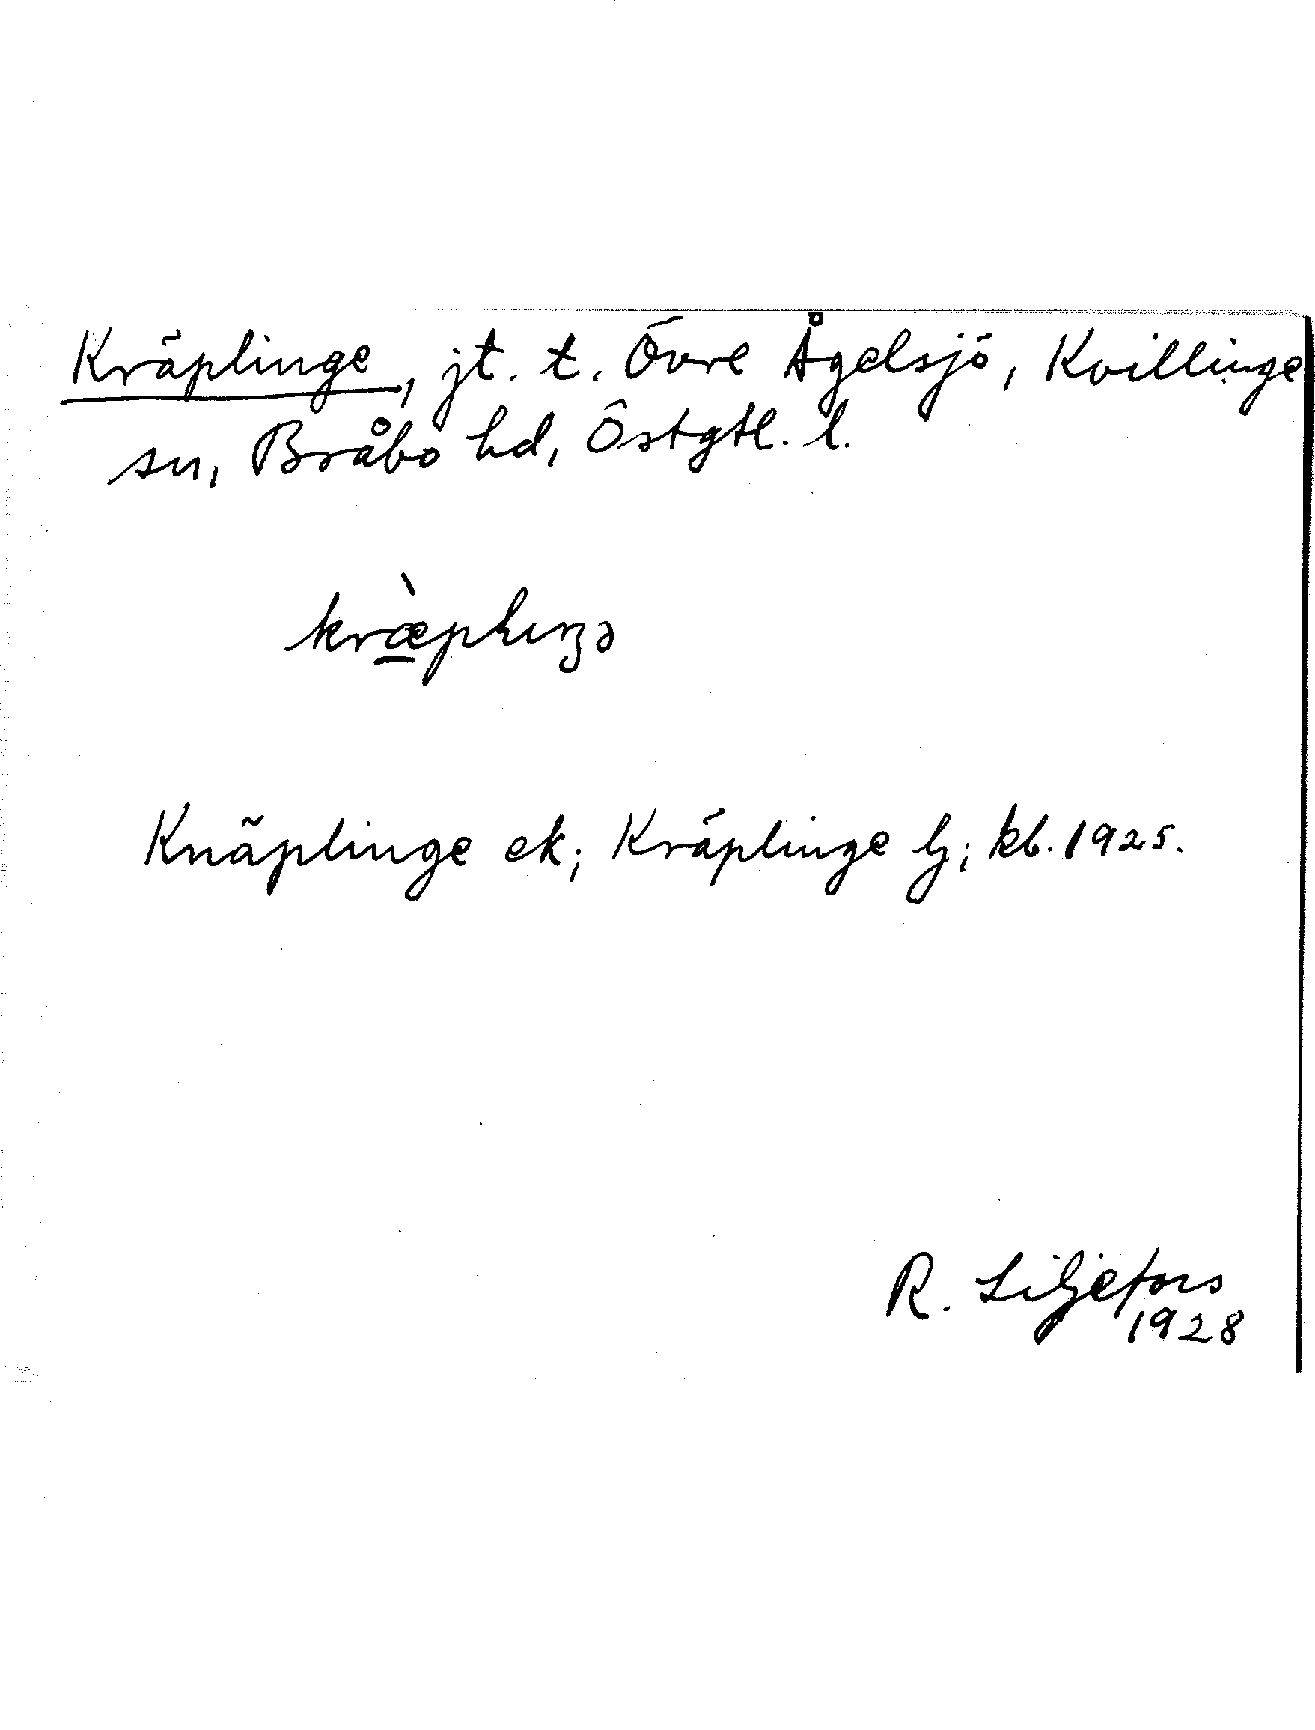 Kräplinge, jt. t. Övre Ågelsjö, Kvillinge
sn, Bråbo hd, Östgtl. l.
Knäplinge ek; Kräplinge lj; kb. 1925.
R. Liljefors
1928